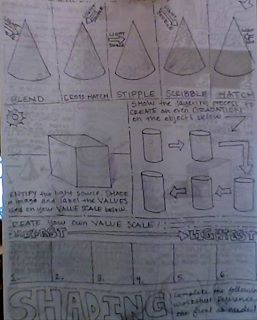 LIGHT
BLEND
CROSS HATCH
STIPPLE
SCRIBBLE
HATCH
SHOW the layering process to
CREATE an even GRADATION
on the objects below
IDENTIFY the light source. SHADE
image and label the VALUES
used on your VALUE SCALE below.
CREATE YOUR OWN VALUE SCALE
DARKEST
LIGHTEST
1. 2. 3. 4. 5. 6.
SHADING
Complete the following
worksheet. Reference
the
as needed!